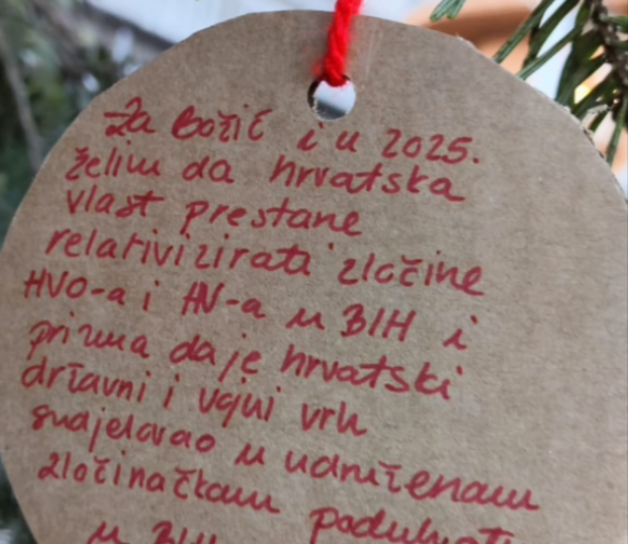 Za Božić i u 2025.
želim da hrvatska
vlast prestane
relativizirati zločine
HVO-a i HV-a u BIH i
prizna da je hrvatski
državni i vojni vrh
sudjelovao u udruženom
zločinačkom
u BIH